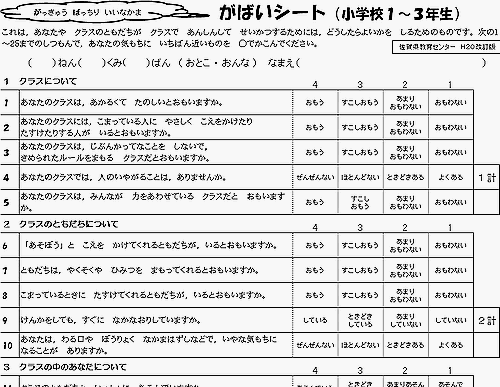 がっきゅう ばっちり いいなかま
がばいシート（小学校１～３年生）
これは、あなたや クラスのともだちが クラスで あんしんして せいかつするためには、どうしたらよいかを しるためのものです。次の1
～25までのしつもんで、あなたの気もちに いちばん近いものを ○でかこんでください。
佐賀県教育センター H20改訂版
(　)ねん(　)くみ(　)ばん (おとこ・おんな) なまえ(　)
1 クラスについて 4 3 2 1
1 あなたのクラスは、あかるくて たのしいとおもいますか。 おもう すこしおもう あまりおもわない おもわない
2 あなたのクラスには、こまっている人に やさしく こえをかけたり
たすけたりする人が いるとおもいますか。 おもう すこしおもう あまりおもわない おもわない
3 あなたのクラスは、じぶんかってなことを しないで、
きめられたルールをまもる クラスだとおもいますか。 おもう すこしおもう あまりおもわない おもわない
4 あなたのクラスでは、人のいやがることは、ありませんか。 ぜんぜんない ほとんどない ときどきある よくある 1計
5 あなたのクラスは、みんなが 力をあわせている クラスだと おもいます
か。 おもう すこしおもう あまりおもわない おもわない
2 クラスのともだちについて 4 3 2 1
6 「あそぼう」と こえを かけてくれるともだちが、いるとおもいますか。 おもう すこしおもう あまりおもわない おもわない
7 ともだちは、やくそくや ひみつを まもってくれるとおもいますか。 おもう すこしおもう あまりおもわない おもわない
8 こまっているときに たすけてくれるともだちが、いるとおもいますか。 おもう すこしおもう あまりおもわない おもわない
9 けんかをしても、すぐに なかなおりしていますか。 している ときどきしている あまりしていない していない 2計
10 あなたは、わる口や ぼうりょく なかまはずしなどで、いやな気もちに
なることが ありますか。 ぜんぜんない ほとんどない ときどきある よくある
3 クラスの中のあなたについて 4 3 2 1